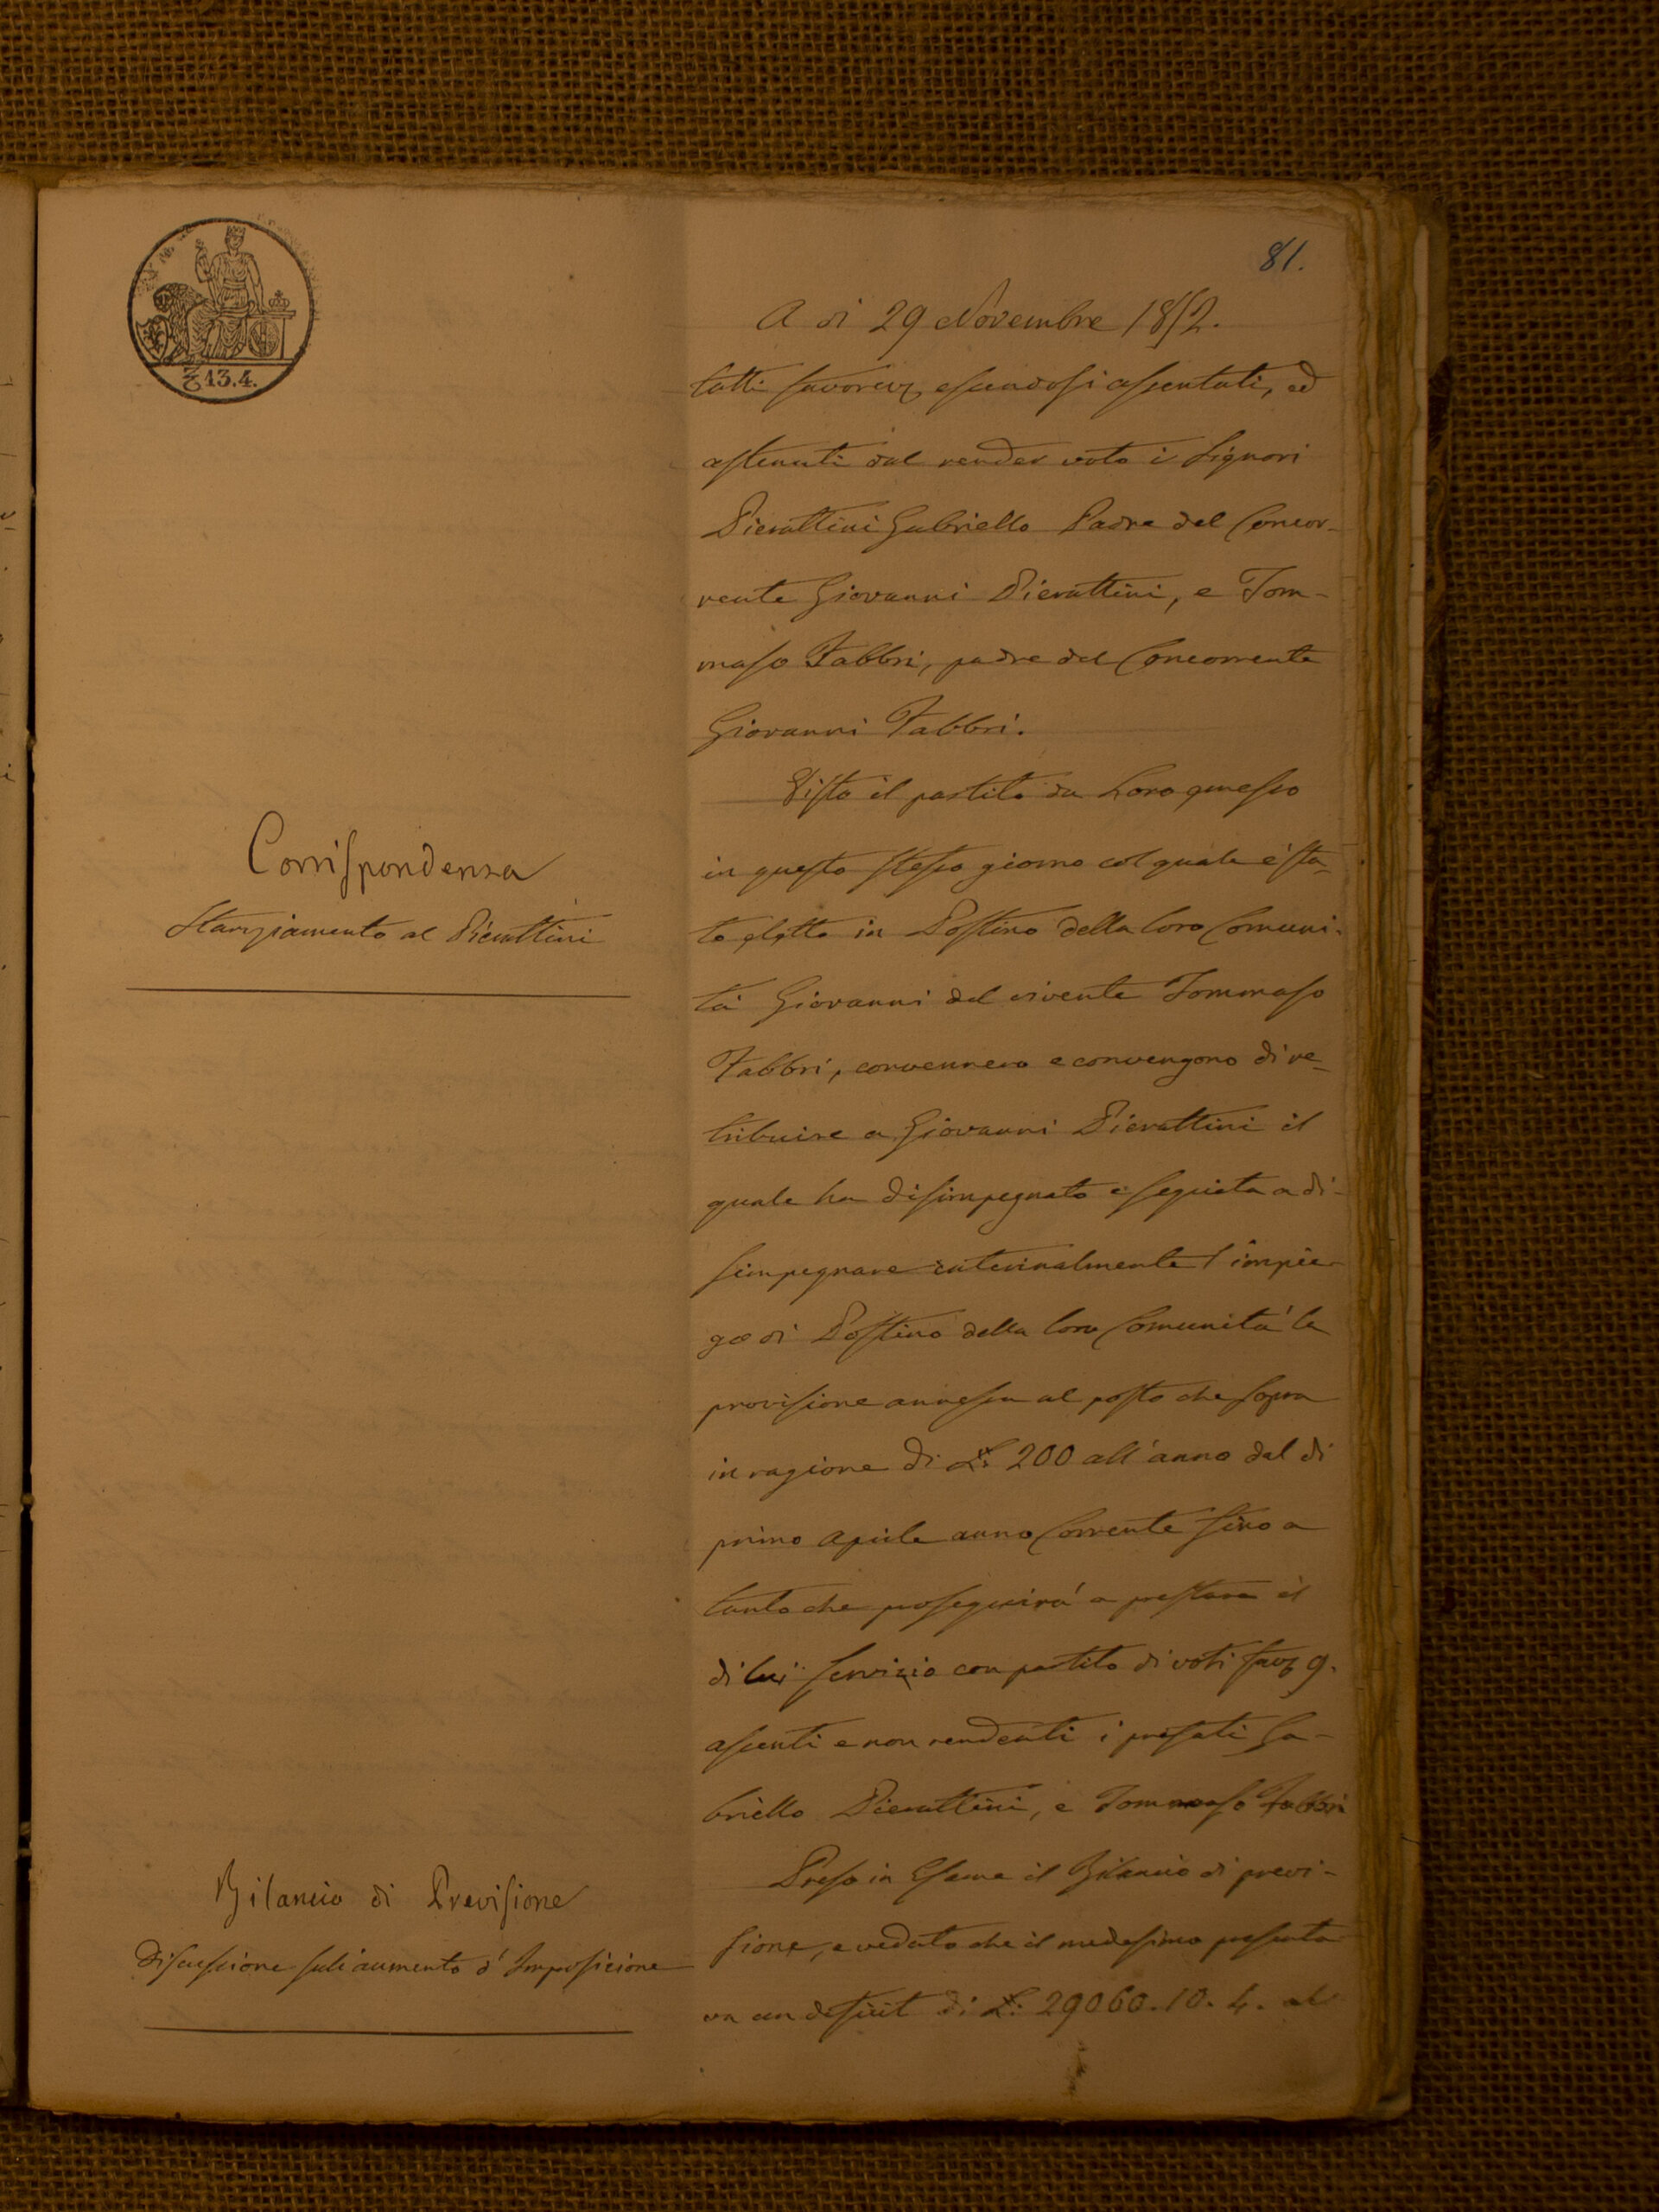 81.
A di 29 Novembre 1852.
tutti favorev, essendosi assentati, ed
astenuti dal render voto i Signori
Pierattini Gabriello Padre del Concor-
rente Giovanni Pierattini, e Tom-
maso Fabbri, padre del Concorrente
Giovanni Fabbri.
Corrispondenza
Stanziamento al Pierattini
Visto il partito da Loro emesso
in questo stesso giorno col quale è sta-
to eletto in Postino della loro Comuni-
tà Giovanni del vivente Tommaso
Fabbri, convennero e convengono di re-
tribuire a Giovanni Pierattini il
quale ha disimpegnato e seguita a di-
simpegnare interinalmente l'impie-
go di Postino della loro Comunità la
provisione annessa al posto che sopra
in ragione di L. 200 all'anno dal di
primo Aprile anno Corrente fino a
tanto che proseguirà a prestare il
di lui servizio con partito di voti fav 9.
assenti e non rendenti i prefati Ga-
briello Pierattini, e Tommaso Fabbri
Bilancio di Previsione
Discussione sull'aumento d'Imposizione
Preso in Esame il Bilancio di previ-
sione, e veduto che il medesimo presenta
va un deficit di L. 29060.10.4. al
£ 13.4.